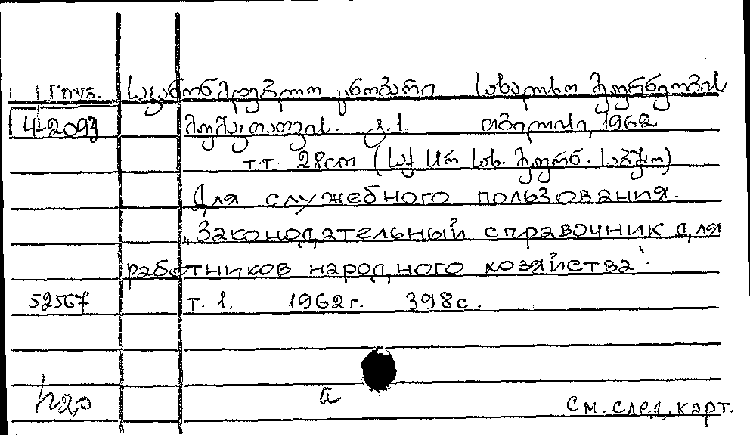 Груз. საკანონმდებლო ცნობარი სახალხო მეურნეობის
4-2093 მუშაკთათვის. ტ.1. თბილისი, 1962
т.т. 28см (საქ სსრ სახ. მეურნ. საბჭო)
Для служебного пользования.
„Законодательный справочник для
работников народного хозяйства".
52567 т. 1. 1962г. 398с.
а
См. след. карт.